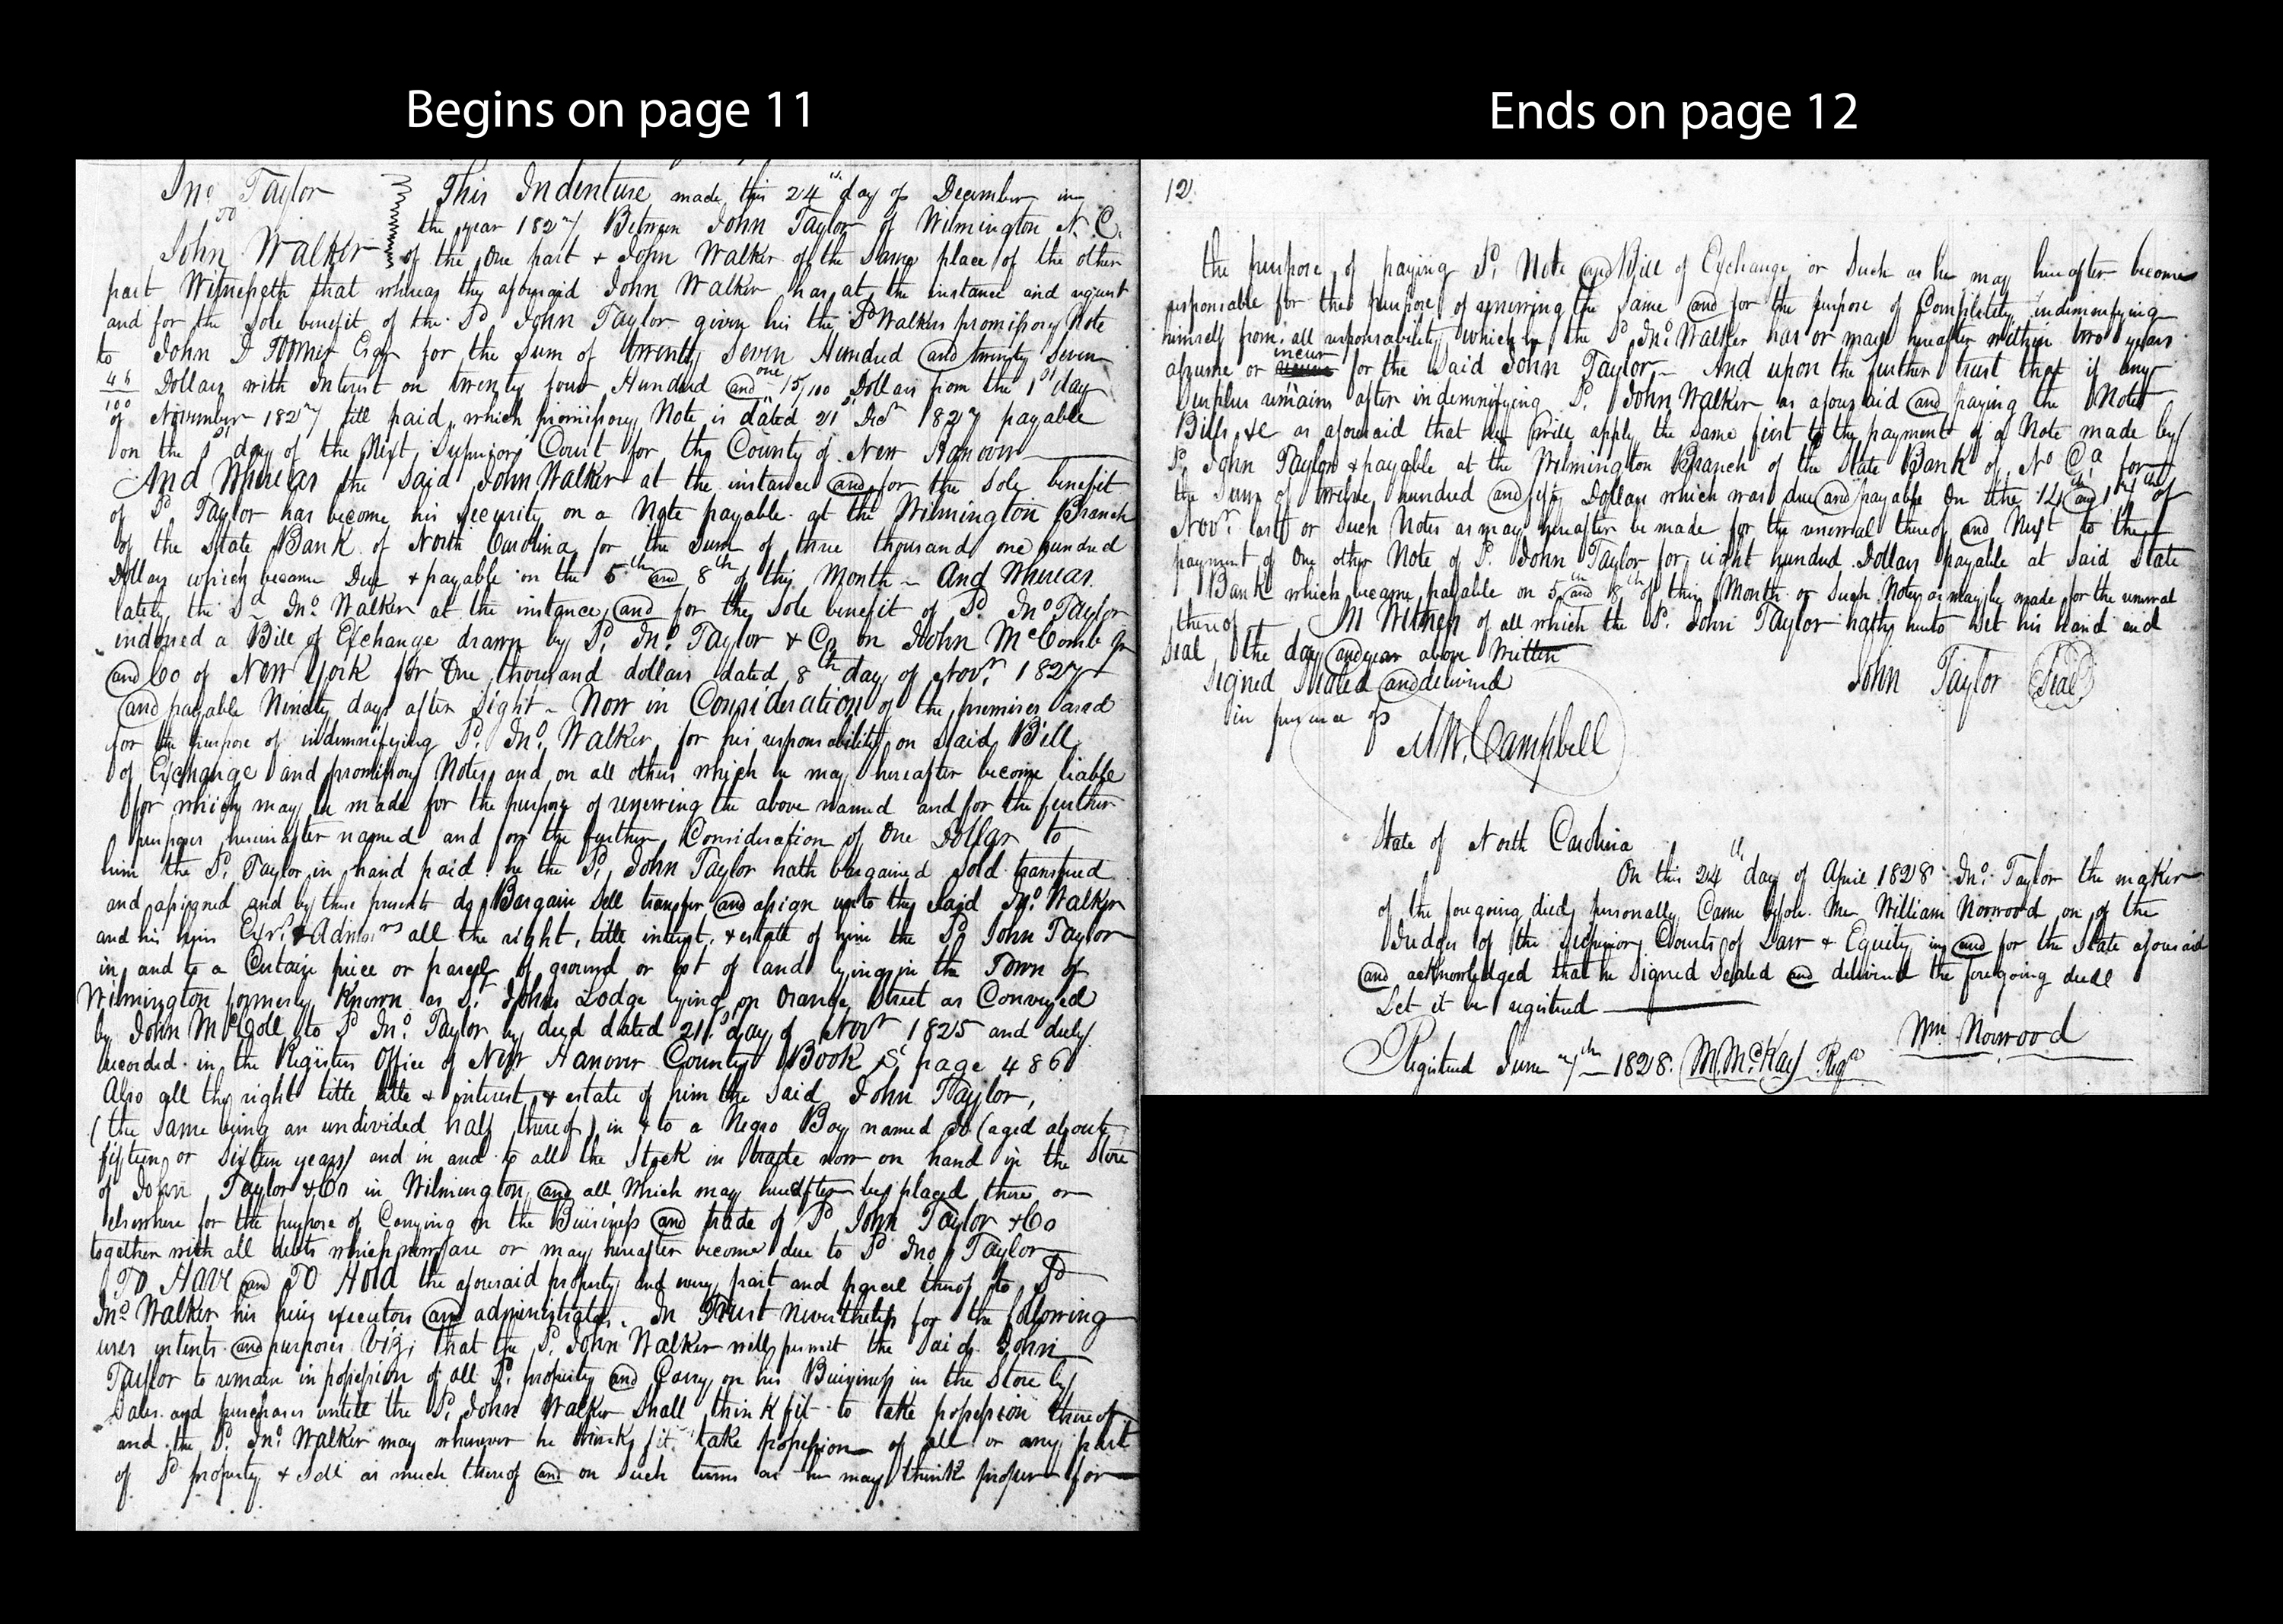 Begins on page 11
Jno. Taylor
To
John Walker
This Indenture made this 24th day of December in
the year 1827 Between John Taylor of Wilmington N. C.
of the One part + John Walker of the Same place of the other
part Witnesseth that whereas the aforesaid John Walker has at the instance and request
and for the Sole benefit of the Sd. John Taylor given his the Sd Walkers promissory Note
to John D Toomer Esqr for the Sum of twenty Seven Hundred and twenty Seven
46/100 Dollars with Interest on twenty four Hundred and one 15/100 Dollars from the 1st day
of November 1827 till paid which promissory Note is dated 21st Decr 1827 payable
on the 1st day of the Next Superior Court for the County of New Hanover
And Whereas the Said John Walker at the instance and for the Sole benefit
of Sd Taylor has become his Security on a Note payable at the Wilmington Branch
of the State Bank of North Carolina for the Sum of three thousand one hundred
Dollars which became Due + payable on the 5th and 8th of this Month – And Whereas
lately the Sd Jno. Walker at the instance and for the Sole benefit of Sd. Jno Taylor
indorsed a Bill of Exchange drawn by Sd. Jno. Taylor + Co on John McComb Jr
and Co of New York for One thousand dollars dated 8th day of Novr. 1827
and payable Ninety days after Sight – Now in Consideration of the premises and
for the purpose of indemnifying Sd. Jno. Walker for his responsability on Said Bill
of Exchange and promissory Notes and on all others which he may hereafter become liable
for which may be made for the purpose of renewing the above named and for the further
purposes hereinafter named and for the further Consideration of One Dollar to
him the Sd. Taylor in hand paid he the Sd. John Taylor hath bargained Sold transfered
and assigned and by these presents do Bargain Sell transfer and assign unto the Said Jno. Walker
and his heirs Exrs. + Admrs all the right, title interest, + estate of him the Sd John Taylor
in and to a Certain piece or parcel of ground or lot of land lying in the Town of
Wilmington formerly Known as St. Johns Lodge lying on Orange Street as Conveyed
by John McColl to Sd Jno. Taylor by deed dated 21st day of Novr 1825 and duly
recorded in the Registers Office of New Hanover County Book S. page 486
Also all the right title title + interest + estate of him the Said John Taylor,
(the Same being an undivided half thereof) in + to a Negro Boy named (aged about
fifteen or Sixteen years) and in and to all the Stock in trade now on hand in the Store
of John Taylor + Co in Wilmington and all Which may hereafter be placed there or
elsewhere for the purpose of Carrying on the Buisiness and trade of Sd John Taylor + Co
together with all debts which now are or may hereafter become due to Sd Jno Taylor
To Have and To Hold the aforesaid property and every part and parcel thereof to Sd
Jno. Walker his heirs executors and administrators. In Trust Nevertheless for the following
uses intents and purposes Viz; that the Sd. John Walker will permit the Said John
Taylor to remain in possession of all Sd. property and Carry on his Buisiness in the Store by
Sales and purchases untill the Sd. John Walker Shall think fit to take possession thereof
and the Sd. Jno. Walker may whenever he thinks fit take possession of all or any part
of Sd property + Sell as much thereof and on Such terms as he may think proper for
Ends on page 12
12
the purpose of paying Sd. Note and Bill of Exchange or Such as he may hereafter become
responsable for the purpose of renewing the Same and for the purpose of Completely indemnifying
himself from all responsability which he the Sd. Jno. Walker has or may hereafter within two years
assume or incur for the Said John Taylor – And upon the further trust that if any
Surplus remains after indemnifying Sd. John Walker as aforesaid and paying the Notes
Bills &c as aforesaid that he will apply the Same first to the payment of a Note made by
Sd. John Taylor + payable at the Wilmington Branch of the State Bank of No Ca for
the Sum of twelve hundred and fifty Dollars which was due and payable On the 14th and 17th of
Novr. last or Such Notes as may hereafter be made for the renewal thereof and Next to the
payment of One other Note of Sd. John Taylor for eight hundred Dollars payable at Said State
Bank which became payable on 5th and 8th of this Month or Such Notes as may be made for the renewal
thereof In Witness of all which the Sd. John Taylor hath hereto Set his hand and
Seal the day and year above Written
Signed Sealed and delivered
in presence of
John Taylor (Seal)
M W. Campbell
State of North Carolina
On this 24th day of April 1828 Jno. Taylor the maker
of the foregoing deed personally Came before Me William Norwood on of the
Judges of the Superior Courts of Law + Equity in and for the State aforesaid
and acknowledged that he Signed Sealed and delivered the foregoing deed
Let it be registered
Wm. Norwood
Registered June 7th 1828. M. McKay Regr